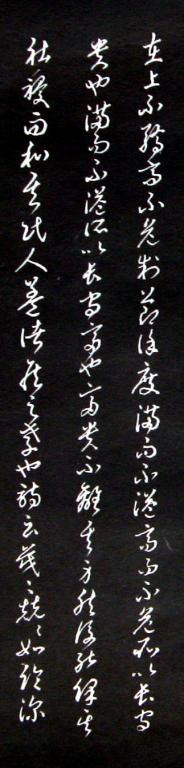 在上不驕高不危制節謹度滿而不溢高而不危所以長守
貴也滿而不溢所以長守富也富貴不離其身然後能保其
社稷而和其民人蓋諸侯之孝也詩云戰〻兢〻如臨深